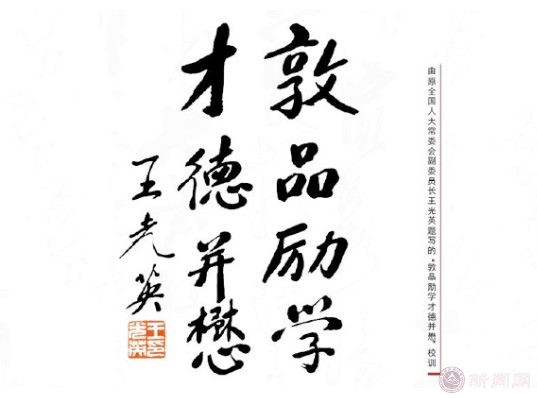 敦品励学
才德并懋
王光英
王光英印
由原全国人大常委会副委员长王光英题写的“敦品励学才德并懋”校训
新闻网